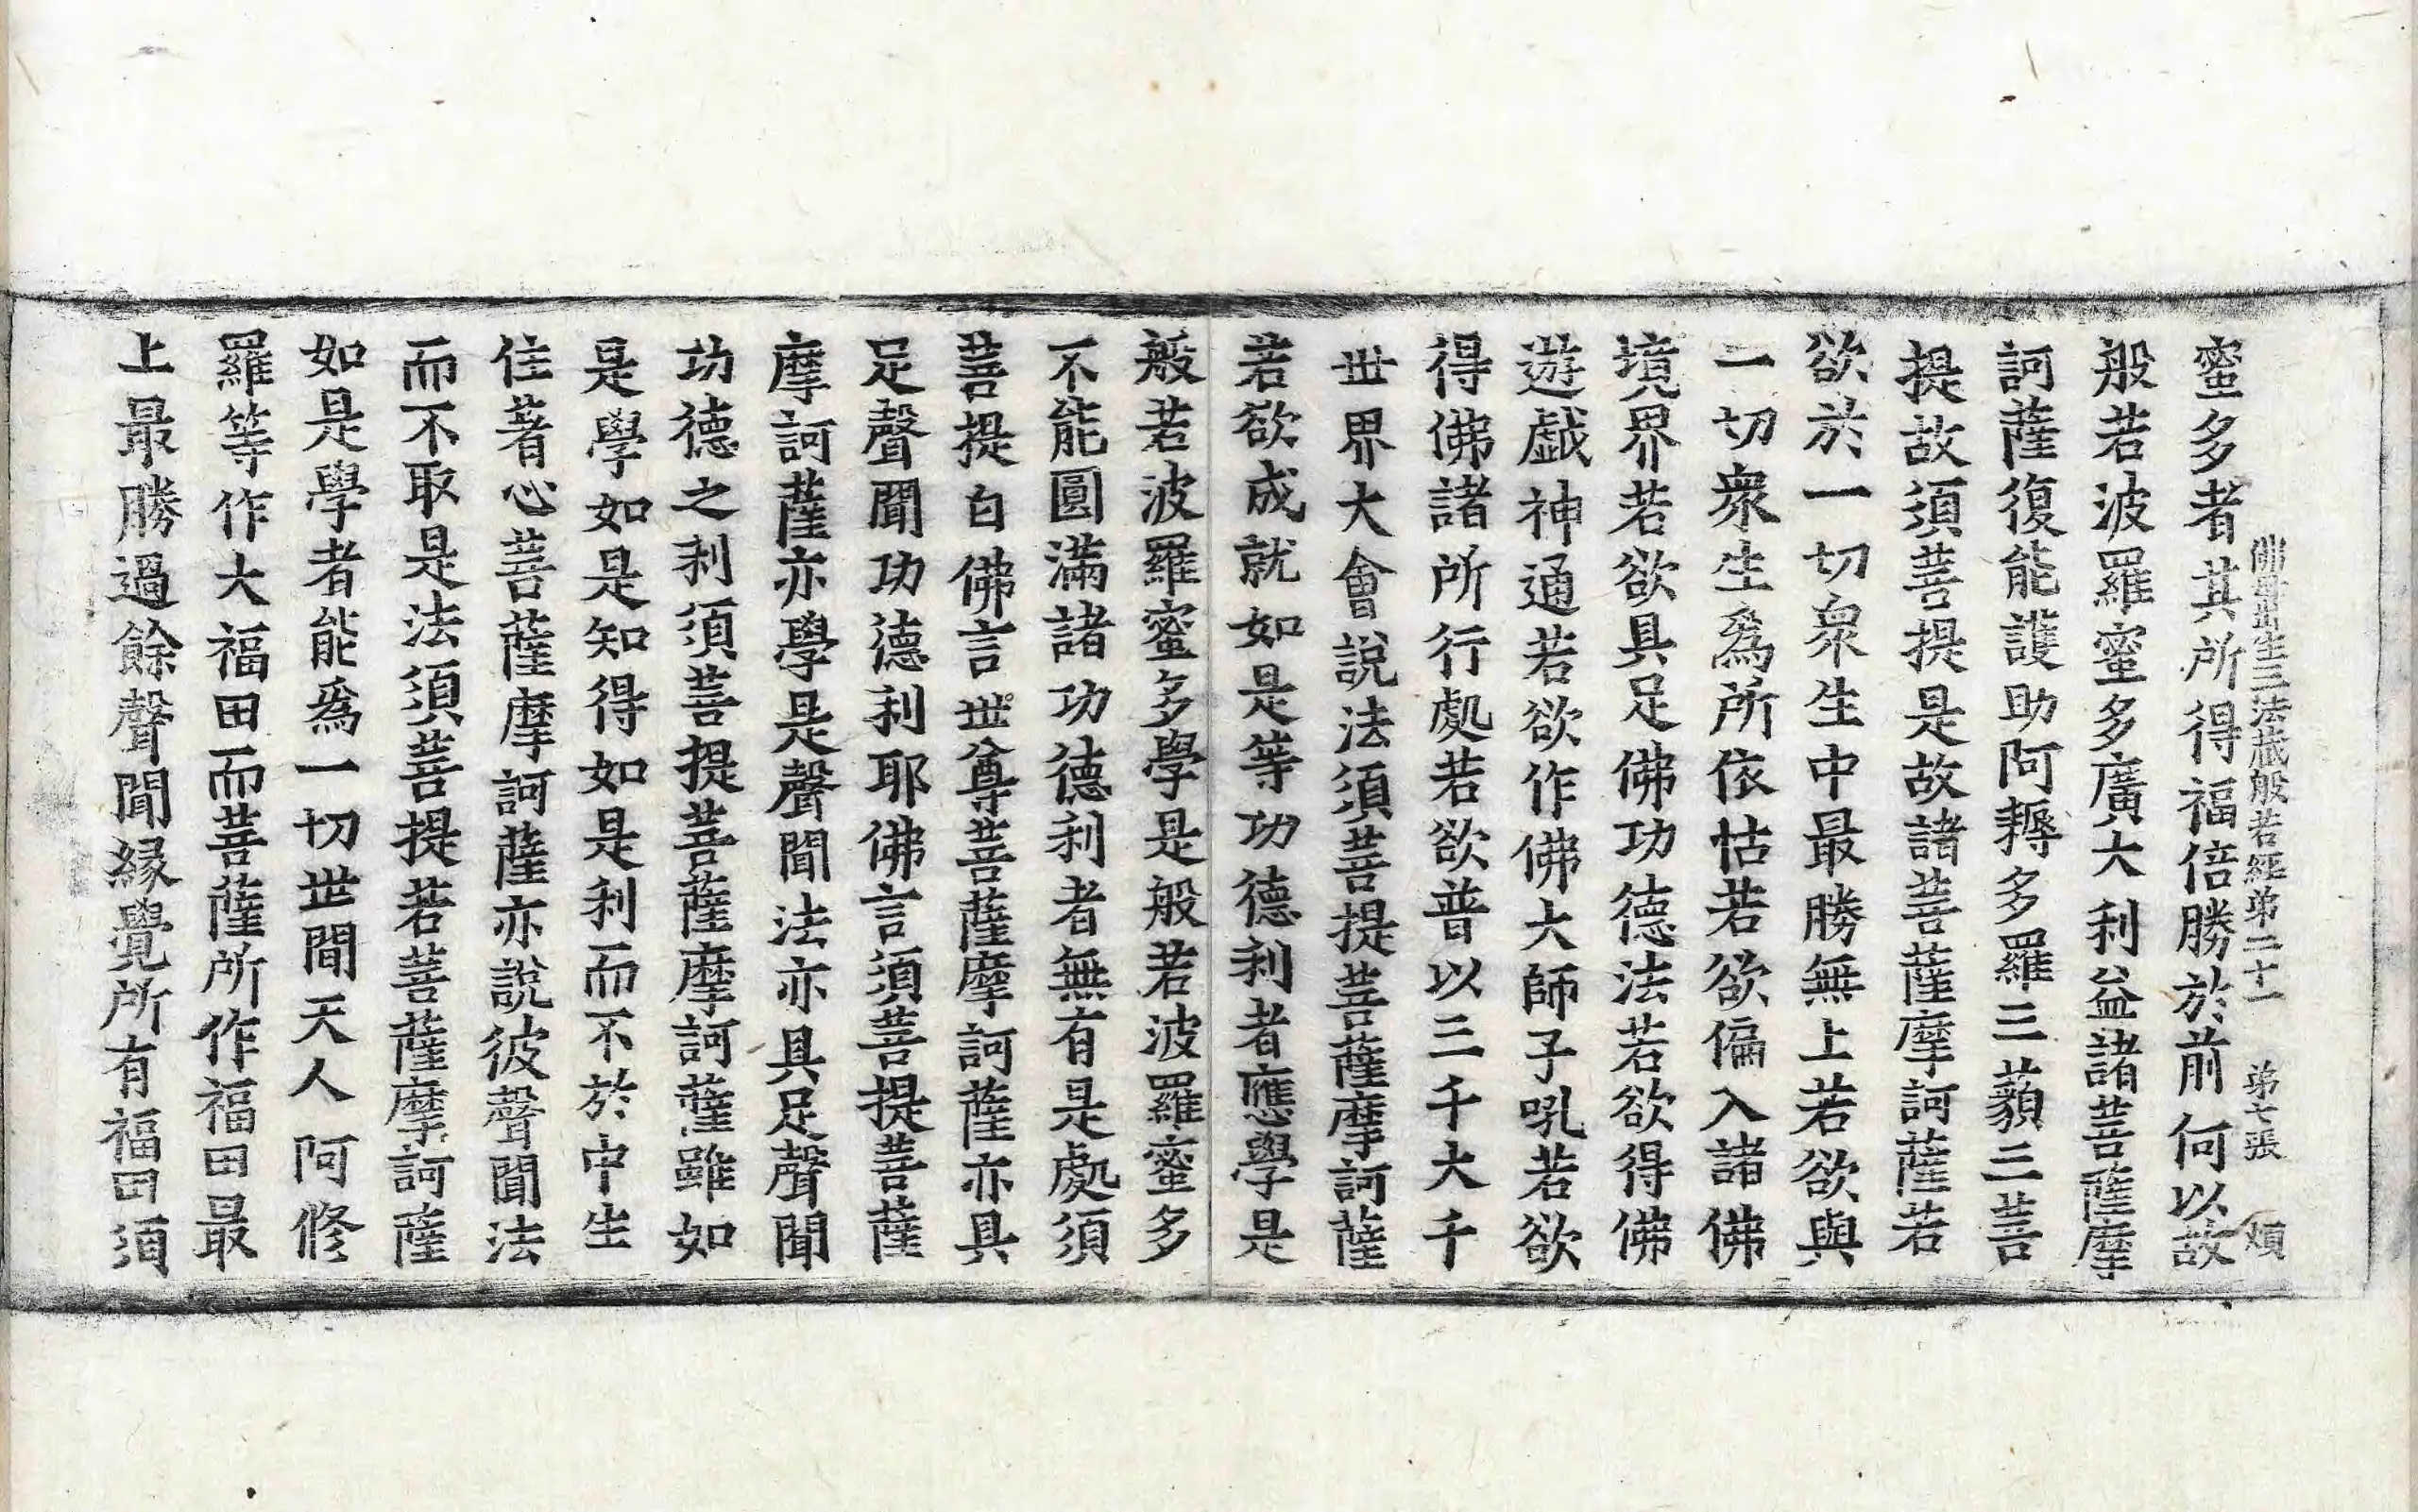 蜜多者其所得福倍勝於前何以故
佛母出生三法藏般若經第二十一 第七張 煩
般若波羅蜜多廣大利益諸菩薩摩
訶薩復能護助阿耨多羅三藐三菩
提故須菩提是故諸菩薩摩訶薩若
欲於一切衆生中最勝無上若欲與
一切衆生爲所依怙若欲徧入諸佛
境界若欲具足佛功德法若欲得佛
遊戲神通若欲作佛大師子吼若欲
得佛諸所行處若欲普以三千大千
世界大會說法須菩提菩薩摩訶薩
若欲成就如是等功德利者應學是
般若波羅蜜多學是般若波羅蜜多
不能圓滿諸功德利者無有是處須
菩提白佛言世尊菩薩摩訶薩亦具
足聲聞功德利耶佛言須菩提菩薩
摩訶薩亦學是聲聞法亦具足聲聞
功德之利須菩提菩薩摩訶薩雖如
是學如是知得如是利而不於中生
住著心菩薩摩訶薩亦說彼聲聞法
而不取是法須菩提若菩薩摩訶薩
如是學者能爲一切世間天人阿修
羅等作大福田而菩薩所作福田最
上最勝過餘聲聞緣覺所有福田須